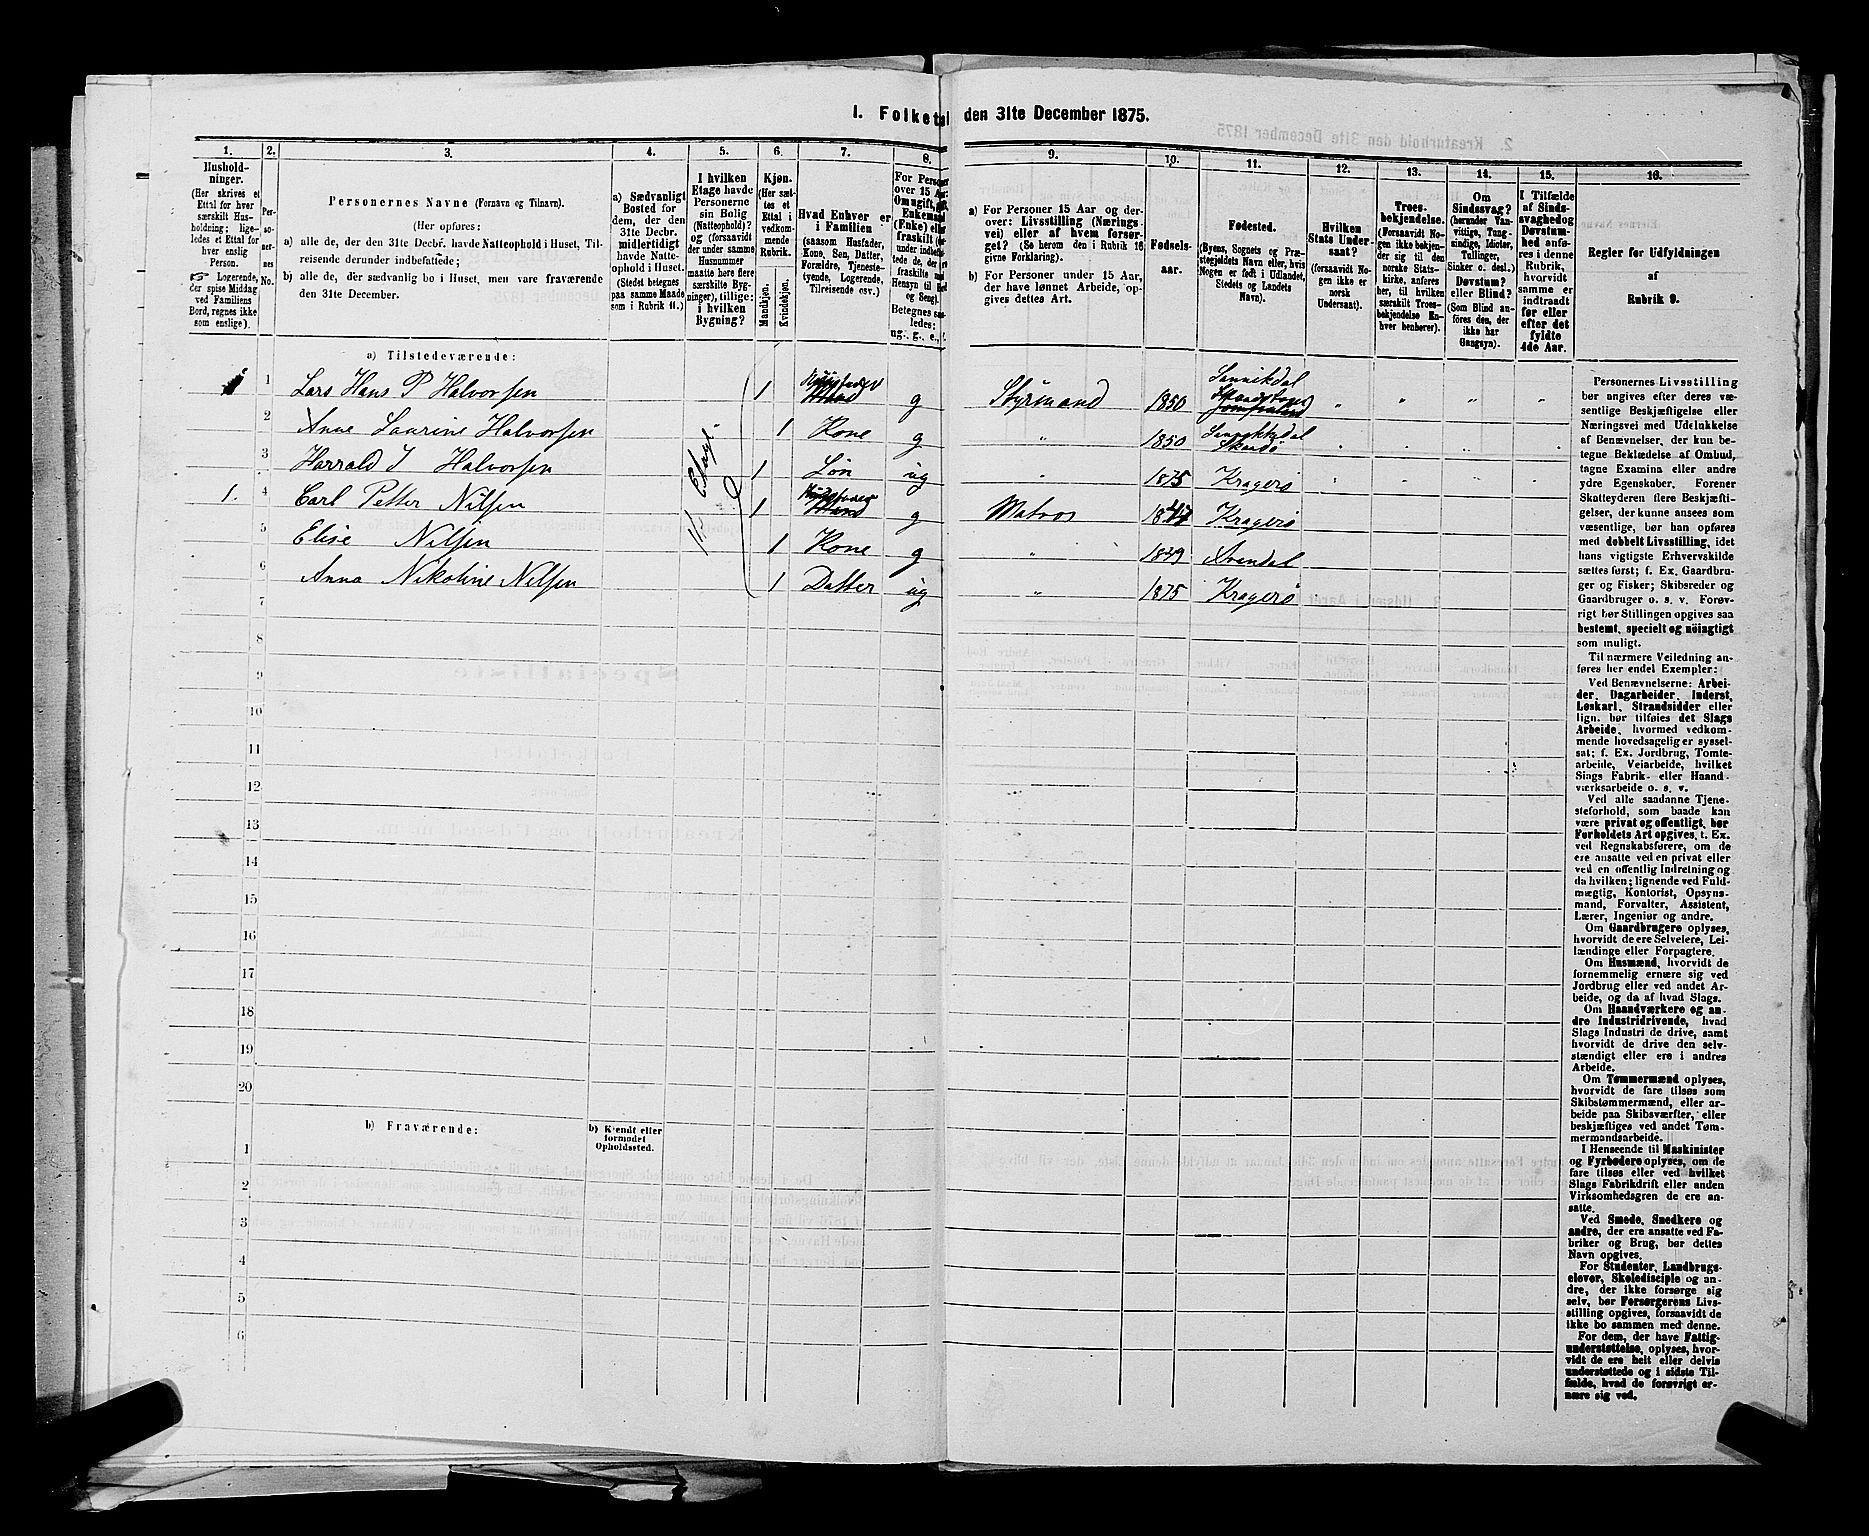 1. Folketal den 31te December 1875.
1. 2. 3. 4. 5. 6. 7. 8. 9. 10. 11. 12. 13. 14. 15. 16.
Hushold-
ninger.
(Her skrives et
Ettal for hver
særskilt Hus-
holdning; lige-
ledes et Ettal for
hver enslig
Person.
☞ Logerende,
der spise Middag
ved Familiens
Bord, regnes ikke
som enslige).
Per-
so-
ner-
nes
No.
Personernes Navne (Fornavn og Tilnavn).
(Her opføres:
a) alle de, der den 31te Decbr. havde Natteophold i Huset, Til-
reisende derunder indbefattede;
b) alle de, der sædvanlig bo i Huset, men vare fraværende
den 31te December.
a) Sædvanligt
Bosted for
dem, der den
31te Decbr.
midlertidigt
havde Natte-
ophold i Huset.
(Stedet betegnes
paa samme Maade
som i Rubrik 11.)
I hvilken
Etage havde
Personerne
sin Bolig
(Natteophold)?
og (forsaavidt
der under samme
Husnummer
maatte høre flere
særskilte Byg-
ninger), tillige:
i hvilken
Bygning?
Kjøn.
(Her sæt-
tes et
Ettal i
vedkom-
mende
Rubrik.
Mandkjøn.
Kvindekjøn.
Hvad Enhver er
i Familien
(saasom Husfader,
Kone, Søn, Datter,
Forældre, Tjeneste-
tyende, Logerende,
Tilreisende osv.)
For Personer
over 15 Aar:
Om ugift, gift,
Enkemand
(Enke) eller
fraskilt
a) For Personer 15 Aar og der-
over: Livsstilling (Nærings-
vei) eller af hvem forsør-
get? (Se herom den i Rubrik 16
givne Forklaring).
b) For Personer under 15 Aar,
der have lønnet Arbeide, op-
gives dettes Art.
Fødsels-
aar.
Fødested.
(Byens, Sognets og Præ-
stegjeldets Navn eller, hvis
Nogen er født i Udlandet,
Stedets og Landets
Navn).
Hvilken
Stats Under-
saat?
(forsaavidt No-
gen ikke er
norsk
Undersaat).
Troes-
bekjendelse.
(Forsaavidt No-
gen ikke bekjen-
der sig til den
norske Stats-
kirke, anføres
her, til hvilken
særskilt Troes-
bekjendelse En-
hver henhører).
Om
Sindssvag?
(herunder Van-
vittige, Tung-
sindige, Idioter,
Tullinger,
Sinker o. desl.)
Døvstum?
eller Blind?
(Som Blind an-
føres den, der
ikke har
Gangsyn).
I Tilfælde
af Sinds-
svaghed og
Døvstum-
hed anfø-
res i denne
Rubrik,
hvorvidt
samme er
indtraadt
før eller
efter det
fyldte
4de Aar.
Regler for Udfyldningen
af
Rubrik 9.
a) Tilstedeværende:
1 Lars Hans P Halvorsen 1 Huusfader g Styrmand 1850 Sannikdal
2 Anne Laurine Halvorsen 1 Kone g " 1850 Skaadø
3 Harrald J Halvorsen 1 Søn ug " 1875 Kragerø
1. 4 Carl Petter Nilsen 1 g Matros Kragerø
5 Elise Nilsen 1 Kone g " 1849 Arendal
6 Anna Nikoline Nilsen 1 Datter ug " 1875 Kragerø
7
8
9
10
11
12
13
14
15
16
17
18
19
20
b) Fraværende:
b) Kjendt eller
formodet
Opholdssted.
1
2
3
4
5
6
Personernes Livsstilling
bør angives efter deres væ-
sentlige Beskjæftigelse eller
Næringsvei med Udelukkelse
af Benævnelser, der kun be-
tegne Beklædelse af Ombud,
tagne Examina eller andre
ydre Egenskaber. Forener
Skatteyderen flere Beskjæfti-
gelser, der kunne ansees som
væsentlige, bør han opføres
med dobbelt Livsstilling, idet
hans vigtigste Erhvervskilde
sættes først; f. Ex. Gaardbru-
ger og Fisker; Skibsreder og
Gaardbruger o. s. v. Forøv-
rigt bør Stillingen opgives saa
bestemt, specielt og nøiagtigt
som muligt.
Til nærmere Veiledning an-
føres her endel Exempler:
Ved Benævnelserne: Arbei-
der, Dagarbeider, Inderst,
Løskarl, Strandsidder eller
lign. bør tilføies det Slags
Arbeide, hvormed vedkom-
mende hovedsagelig er syssel-
sat; f. Ex. Jordbrug, Tomte-
arbeide, Veiarbeide, hvilket
Slags Fabrik- eller Haand-
værksarbeide o. s. v.
Ved alle saadanne Tjene-
steforhold, som baade kan
være privat og offentligt, bør
Forholdets Art opgives, t. Ex.
ved Regnskabsførere, om de
ere ansatte ved en privat eller
ved en offentlig Indretning og
da hvilken; lignende ved Fuld-
mægtig, Kontorist, Opsyns-
mand, Forvalter, Assistent,
Lærer, Ingeniør og andre.
Om Gaardbrugere oplyses,
hvorvidt de ere Selveiere, Lei-
lændinge eller Forpagtere.
Om Husmænd, hvorvidt de
fornemmelig ernære sig ved
Jordbrug eller ved andet Ar-
beide, og da af hvad Slags.
Om Haandværkere og an-
dre Industridrivende, hvad
Slags Industri de drive, samt
hvorvidt de drive den selv-
stændigt eller ere i andres
Arbeide.
Om Tømmermænd oplyses,
hvorvidt de fare tilsøs som
Skibstømmermænd, eller ar-
beide paa Skibsværfter, eller
beskjæftiges ved andet Tøm-
mermandsarbeide.
I Henseende til Maskinister
og Fyrbødere oplyses, om de
fare tilsøs eller ved hvilket
Slags Fabrikdrift eller anden
Virksomhedsgren de ere an-
satte.
Ved Smede, Snedkere og
andre, der ere ansatte ved Fa-
briker og Brug, bør dettes
Navn opgives.
For Studenter, Landbrugs-
elever, Skoledisciple og an-
dre, der ikke forsørge sig
selv, bør Forsørgerens Livs-
stilling opgives, forsaavidt de
ikke bo sammen med denne.
For dem, der have Fattig-
understøttelse, oplyses, hvor-
vidt de ere helt eller delvis
understøttede og i sidste Til-
fælde, hvad de forøvrigt er-
nære sig ved.